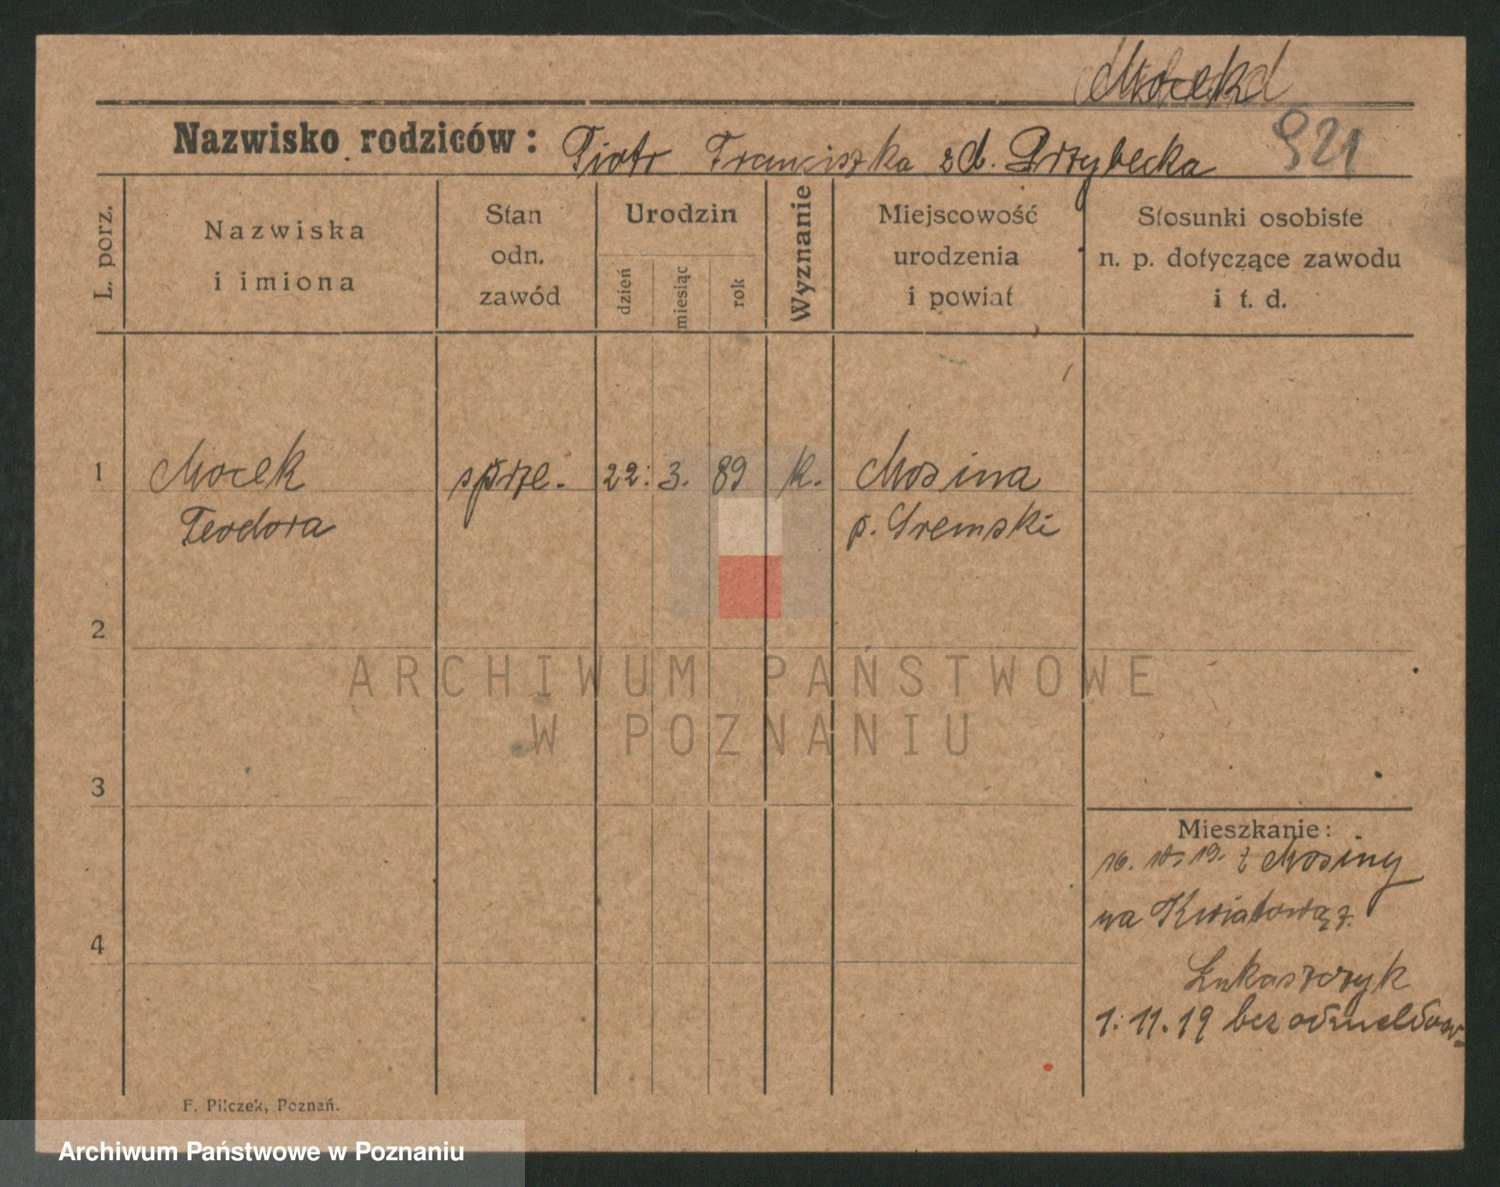 Mocek
Nazwisko rodziców: Piotr Franciszka zd. Przybecka 921
L. porz.
Nazwiska
i imiona
Stan
odn.
zawód
Urodzin
dzień
miesiąc
rok
Wyznanie
Miejscowość
urodzenia
i powiat
Stosunki osobiste
n. p. dotyczące zawodu
i t. d.
1 Mocek sprze. 22. 3. 89 k. Mosina
Teodora p. Śremski
2
3
4
Mieszkanie:
16. 10. 19. z Mosiny
na Kwiatową
Łukaszczyk
1. 11. 19 bez odmeldow.
F. Pilczek, Poznań.
ARCHIWUM PAŃSTWOWE
W POZNANIU
Archiwum Państwowe w Poznaniu